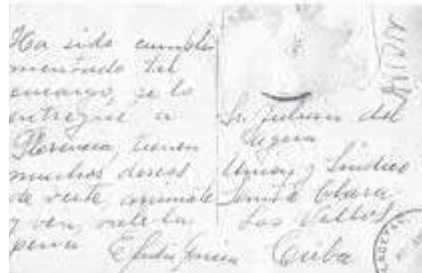 Ha sido cumpli
mentado tal
encargo, se lo
entregué a
Florencia, tienen
muchos deseos
de verte, animate
y ven, vale la
pena
Sr. Julian del
Unión y Sindico
Santa Clara.
Las Villas
Cuba